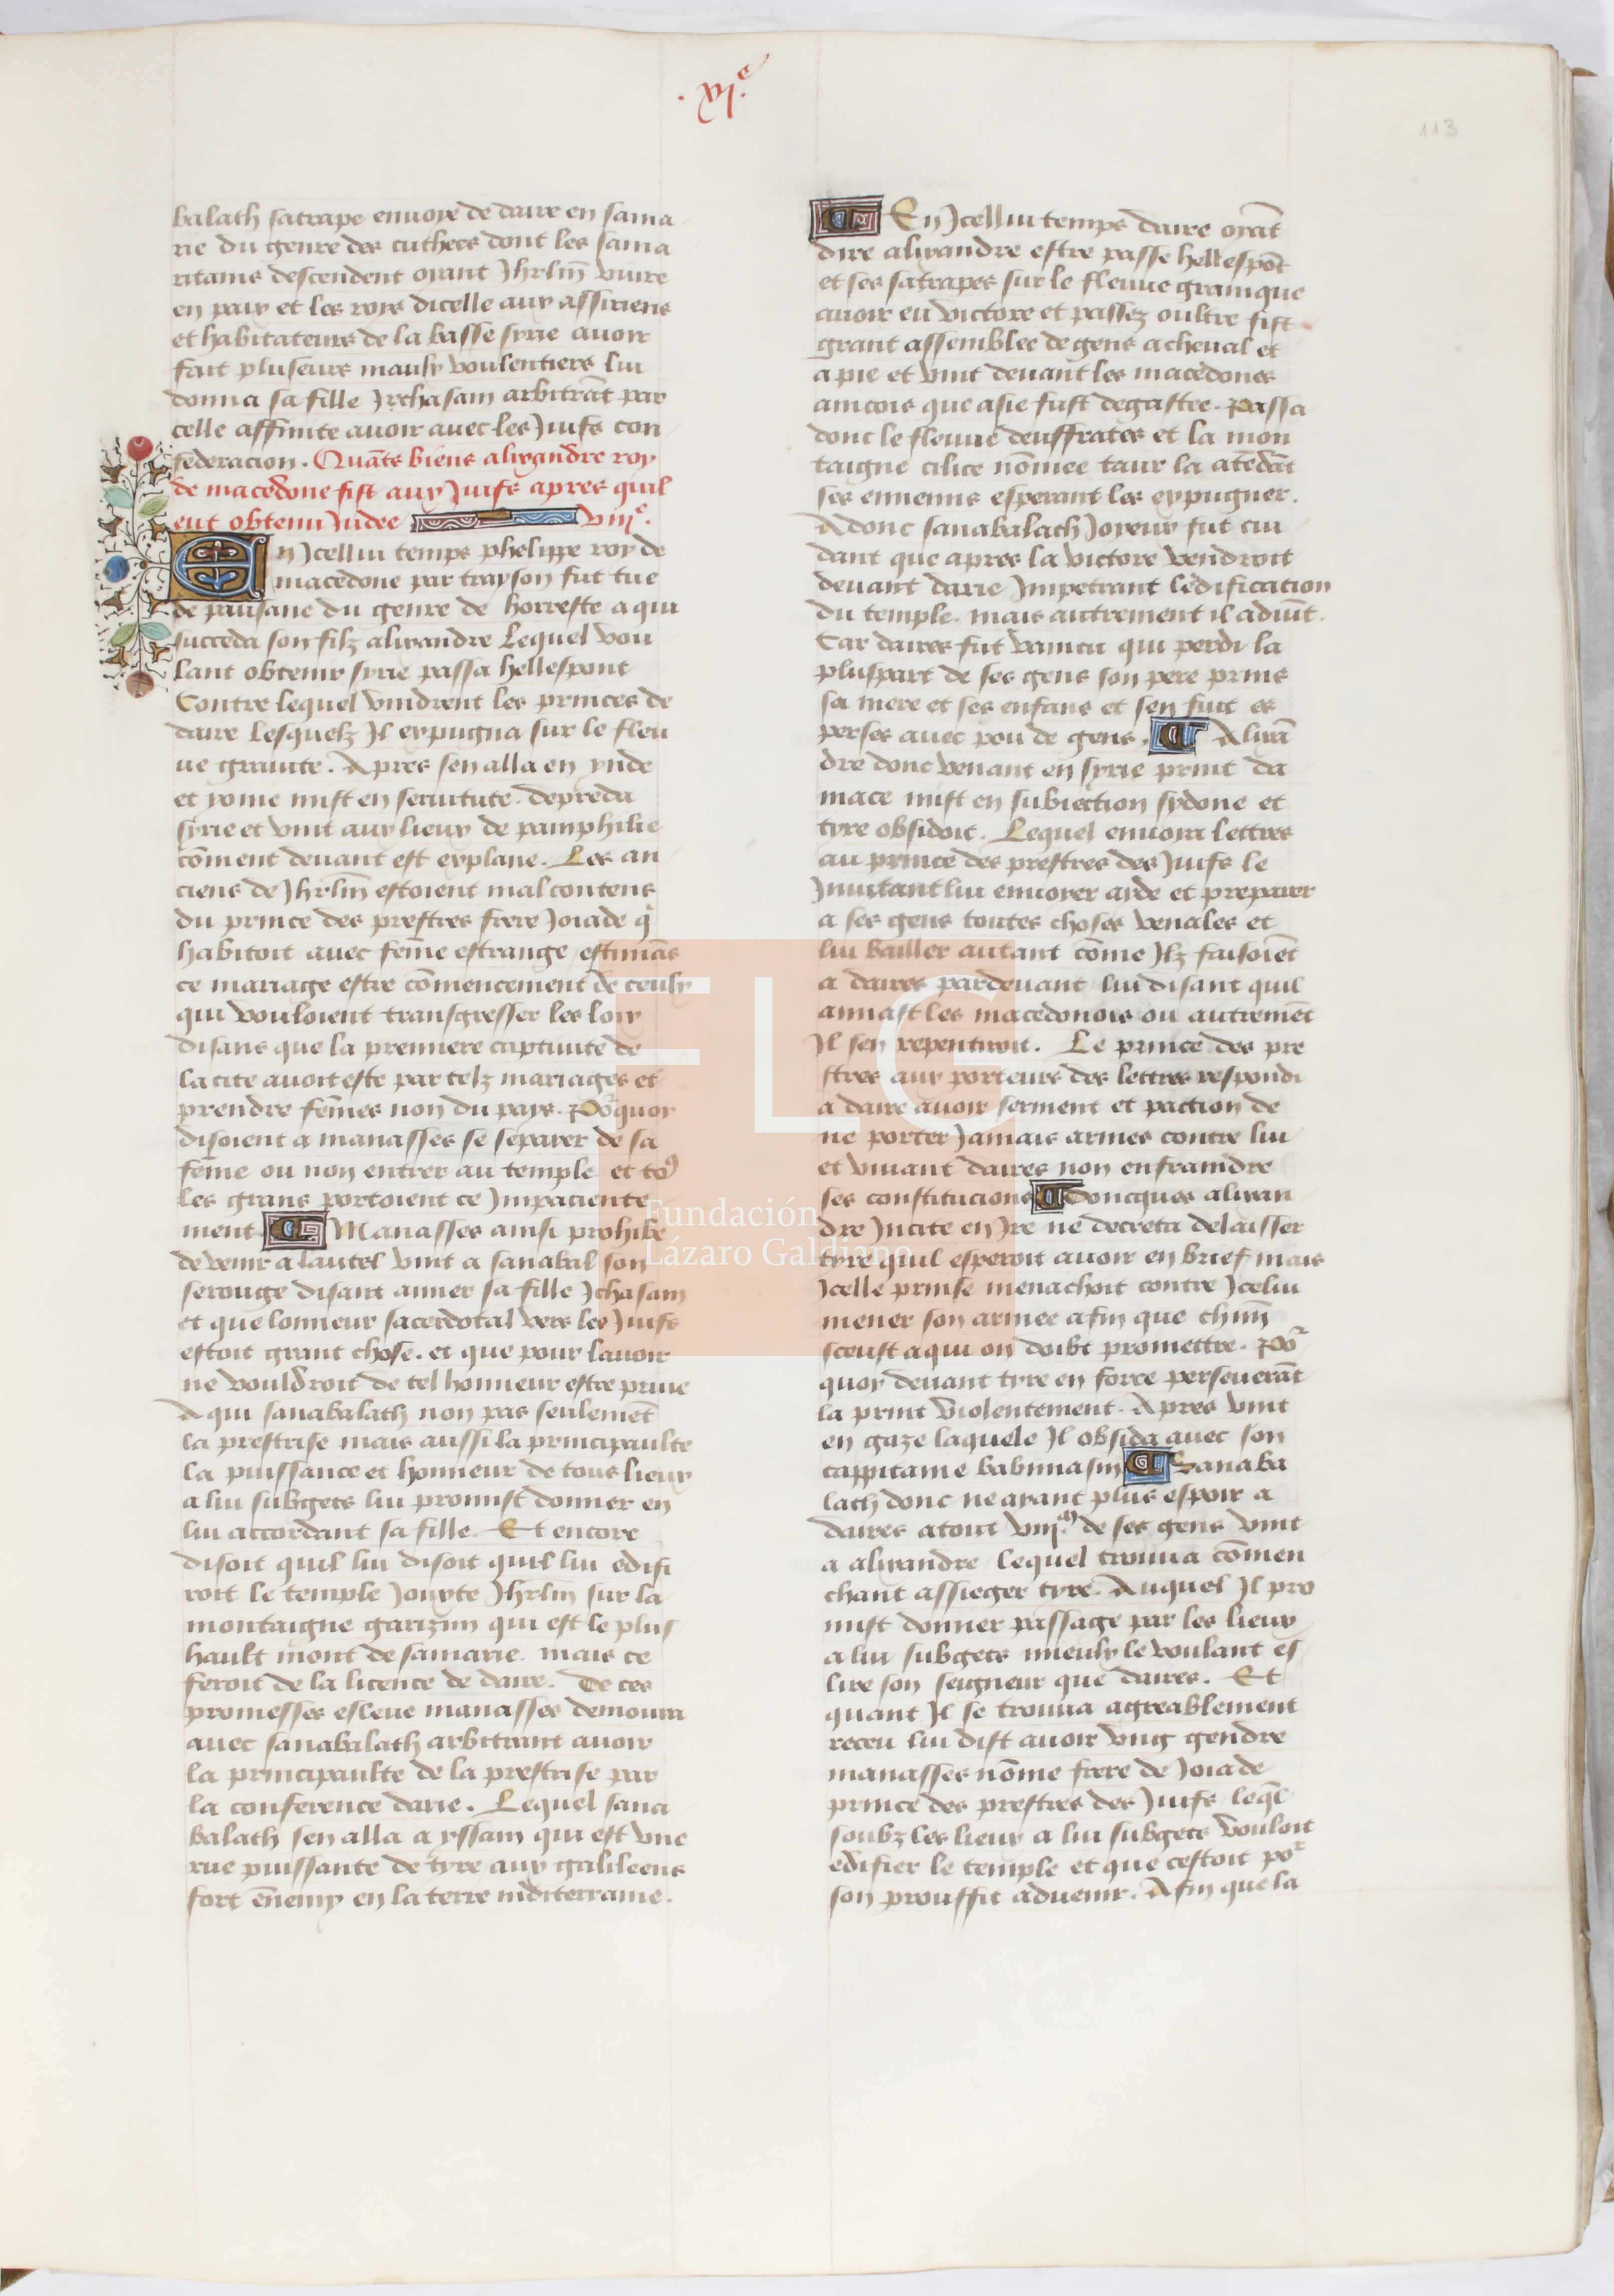 .xj.e
113
balath satrape enuoye de daire en sama
rie du genre des cuthees dont les sama
ritains descendent oyant Jhrlm̄ viure
en paix et les roys dicelle aux assiriens
et habitateurs de la basse syrie auoir
fait pluseurs maulx voulentiers lui
donna sa fille Jrchasam arbitrāt par
celle affinite auoir auec les Juifs con
federacion. Quāts biens alixandre roy
de macedone fist aux Juifs apres quil
eut obtenu Judee viij.e
En Jcellui temps phelippe roy de
macedone par trayson fut tue
de pausane du genre de horreste a qui
succeda son filz alixandre Lequel vou
lant obtenir syrie passa hellespont
Contre lequel vindrent les princes de
daire Lesquelz Jl expugna sur le fleu
ue granite. Apres sen alla en ynde
et yonie mist en seruitute. depreda
syrie et vint aux lieux de pamphilie
cōment deuant est explane. Les an
ciens de Jhrlm̄ estoient mal contens
du prince des prestres frere Joiade q̄
habitoit auec fēme estrange estimās
ce mariage estre cōmencement de ceulx
qui vouloient transgresser les loix
disans que la premiere captiuite de
la cite auoit este par telz mariages et
prendre fēmes non du pays. Po̾quoy
disoient a manasses se separer de sa
fēme ou non entrer au temple et to9
les grans portoient ce Jmpaciente
ment. Manasses ainsi prohibe
de venir a lautel vint a sanabal son
serouge disant aimer sa fille Jchasam
et que lonneur sacerdotal vers les Juifs
estoit grant chose. et que pour lauoir
ne vouldroit de tel honneur estre priue
A qui sanabalath non pas seulemēt
la prestrise mais aussi la principaulte
la puissance et honneur de tous lieux
a lui subgets lui promist donner en
lui accordant sa fille. Et encore
disoit quil lui disoit quil lui edifi
roit le temple Jouxte Jhrlm̄ sur la
montaigne garizim qui est le plus
hault mont de samarie. mais ce
feroit de la licence de daire. De ces
promesses esleue manasses demoura
auec sanabalath arbitrant auoir
la principaulte de la prestrise par
la conference darie. Lequel sana
balath sen alla a yssam qui est vne
rue puissante de tyre aux galileens
fort ēnemy en la terre mditerraine.
En Jcellui temps daire oyāt
dire alixandre estre passe hellespōt
et ses satrapes sur le fleuue granique
auoir eu victore et passez oultre fist
grant assemblee de gens a cheual et
a pie et vint deuant les macedones
aincois que asie fust degastee. Passa
donc le fleuue deuffrates et la mon
taigne cilice nōmee taur la atēdāt
ses ennemis esperant les expugner.
Adonc sanabalach Joyeux fut cui
dant que apres la victore vendroit
deuant darie Jmpetrant ledification
du temple. mais autrement il aduīt.
Car daires fut vaincu qui perdi la
pluspart de ses gens son pere prins
sa mere et ses enfans et sen fuit es
perses auec pou de gens. Alixā
dre donc venant en syrie print da
mace mist en subiection sydone et
tyre obsidoit. Lequel enuoia lettres
au prince des prestres des Juifs le
Jnuitant lui enuoyer ayde et preparer
a ses gens toutes choses venales et
lui bailler autant cōme Jlz faisoiēt
a daires pardeuant lui disant quil
amast les macedonois ou autremēt
Jl sen repentiroit. Le prince des pre
stres aux porteurs des lettres respondi
a daire auoir serment et paction de
ne porter Jamais armes contre lui
et viuant daires non enfraindre
ses constitucions Doncques alixan
dre Jncite en Jre ne decreta delaisser
tyre quil esperoit auoir en brief mais
Jcelle prinse menachoit contre Jcelui
mener son armee afin que chūn
sceust a qui on doibt promettre. Po̾
quoy deuant tyre en force perseuerāt
la print violentement. Apres vint
en gaze laquele Jl obsida auec son
cappitaine babimasin Sanaba
lach donc ne ayant plus espoir a
daires atout viij.m de ses gens vint
a alixandre lequel trouua cōmen
chant assieger tyre. Auquel Jl pro
mist donner passage par les lieux
a lui subgets mieulx le voulant es
lire son seigneur que daires. Et
quant Jl se trouua agreablement
receu lui dist auoir vng gendre
manasses nōme frere de Joiade
prince des prestres des Juifs leql̄
soubz les lieux a lui subgets vouloit
edifier le temple et que cestoit po̾
son prouffit aduenir. Afin que la
FLG
Fundación
Lázaro Galdiano